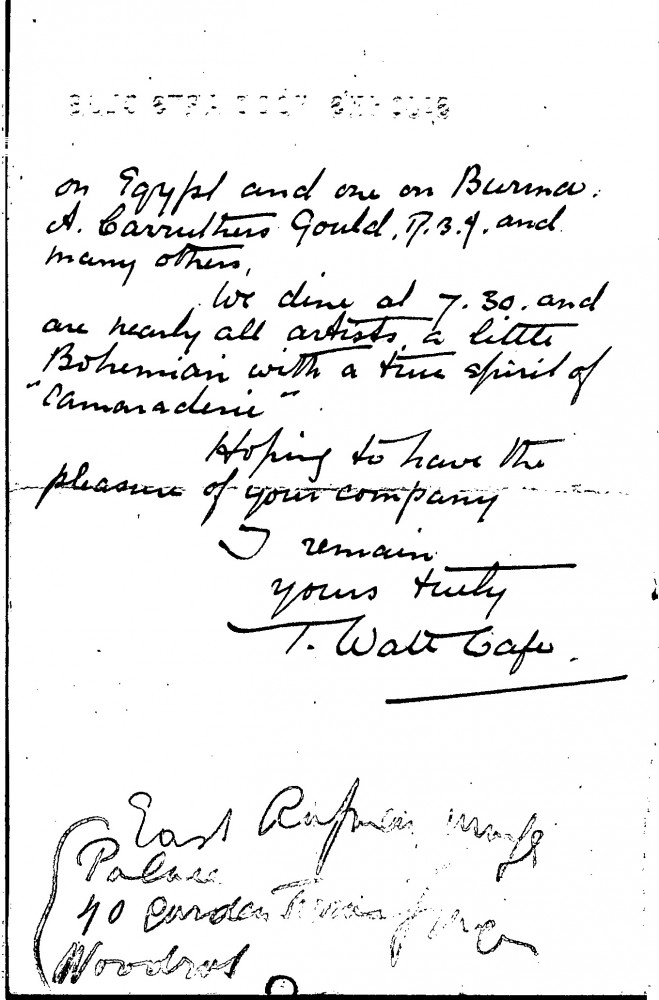 on Egypt and one on Burma.
A. Carruthers Gould, R.B.A. and
many others,
We dine at 7.30. and
are nearly all artists, a little
Bohemian with a true spirit of
"Camaraderie"
Hoping to have the
pleasure of your company
I remain
yours truly
T. Watt Cafe.
East
Palace
40